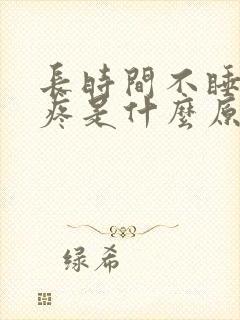 長時間不睡
疼是什麼原
绿希